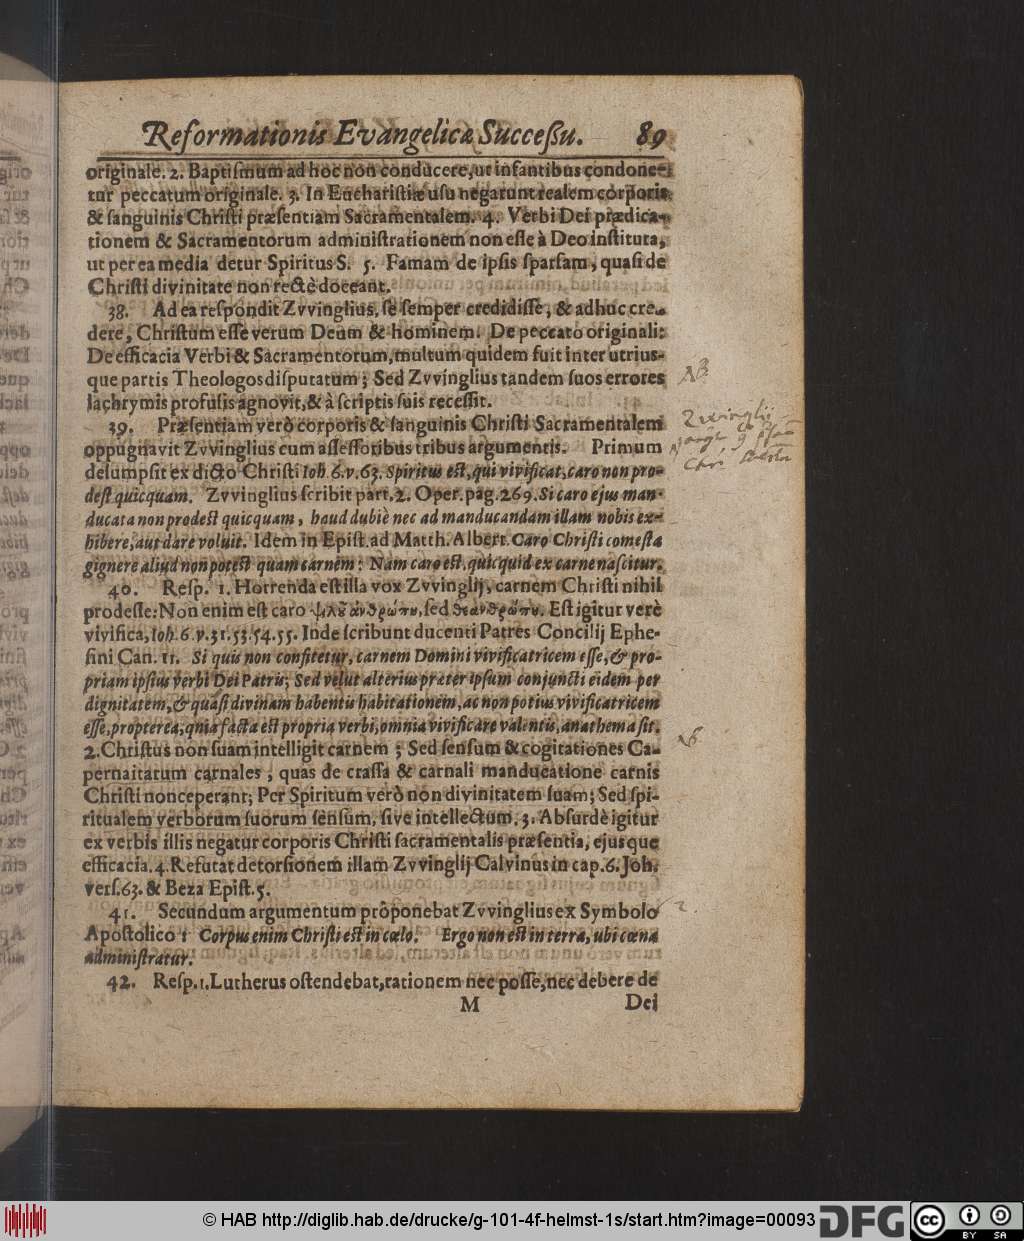 Reformationis Evangelicæ Succeßu. 89
originale. 2. Baptiſmum ad hoc non conducere, ut infantibus condone-
tur peccatum originale. 3. In Euchariſtiæ uſu negarunt realem corporis
& ſanguinis Chriſti præſentiam Sacramentalem. 4. Verbi Dei prædica-
tionem & Sacramentorum adminiſtrationem non eſſe à Deo inſtituta,
ut per ea media detur Spiritus S. 5. Famam de ipſis ſparſam, quaſi de
Chriſti divinitate non rectè doceant.
38. Ad ea reſpondit Zvvinglius, ſe ſemper credidiſſe, & adhuc cre-
dere, Chriſtum eſſe verum Deum & hominem. De peccato originali:
De efficacia Verbi & Sacramentorum, multum quidem fuit inter utrius-
que partis Theologos diſputatum; Sed Zvvinglius tandem ſuos errores
lachrymis profuſis agnovit, & à ſcriptis ſuis receſſit.
NB.
39. Præſentiam verò corporis & ſanguinis Chriſti Sacramentalem
oppugnavit Zvvinglius cum aſſeſſoribus tribus argumentis. Primum
deſumpſit ex dicto Chriſti Joh. 6. v. 63. Spiritus eſt, qui vivificat, caro non pro-
deſt quicquam. Zvvinglius ſcribit part. 2. Oper. pag. 269. Si caro ejus man-
ducata non prodeſt quicquam, haud dubiè nec ad manducandam illam nobis ex-
hibere, aut dare voluit. Idem in Epiſt. ad Matth. Albert. Caro Chriſti comeſta
gignere aliud non poteſt quam carnem: Nam caro eſt, quicquid ex carne naſcitur.
Zwinglii
40. Reſp. 1. Horrenda eſt illa vox Zvvinglij, carnem Chriſti nihil
prodeſſe: Non enim eſt caro ψιλοῦ ἀνθρώπου, ſed θεανθρώπου. Eſt igitur verè
vivifica, Joh. 6. v. 31. 53. 54. 55. Inde ſcribunt ducenti Patres Concilij Ephe-
ſini Can. 11. Si quis non confitetur, carnem Domini vivificatricem eſſe, & pro-
priam ipſius verbi Dei Patris; Sed velut alterius præter ipſum conjuncti eidem per
dignitatem, & quaſi divinam habentis habitationem, ac non potius vivificatricem
eſſe, propterea, quia facta eſt propria verbi, omnia vivificare valentis, anathema ſit.
2. Chriſtus non ſuam intelligit carnem; Sed ſenſum & cogitationes Ca-
NB.
pernaitarum carnales, quas de craſſa & carnali manducatione carnis
Chriſti conceperant; Per Spiritum verò non divinitatem ſuam; Sed ſpi-
ritualem verborum ſuorum ſenſum, ſive intellectum. 3. Abſurdè igitur
ex verbis illis negatur corporis Chriſti ſacramentalis præſentia, ejusque
efficacia. 4. Refutat detorſionem illam Zvvinglij Calvinus in cap. 6. Joh.
verſ. 63. & Beza Epiſt. 5.
41. Secundum argumentum proponebat Zvvinglius ex Symbolo
2.
Apoſtolico: Corpus enim Chriſti eſt in cœlo. Ergo non eſt in terra, ubi cœna
adminiſtratur.
42. Reſp. 1. Lutherus oſtendebat, rationem nec poſſe, nec debere de
M Dei
© HAB http://diglib.hab.de/drucke/g-101-4f-helmst-1s/start.htm?image=00093
DFG
cc BY SA